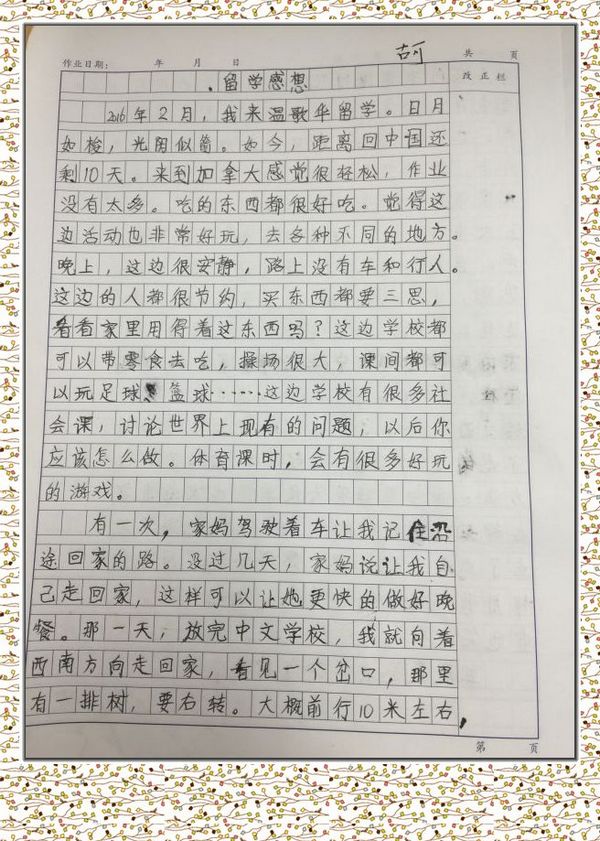 胡可
共 页
作业日期: 年 月 日
改正栏
留学感想
2016年2月，我来温歌华留学。日月
如梭，光阴似箭。如今，距离回中国还
剩10天。来到加拿大感觉很轻松，作业
没有太多。吃的东西都很好吃。觉得这
边活动也非常好玩，去各种不同的地方。
晚上，这边很安静，路上没有车和行人。
这边的人都很节约，买东西都要三思，
看看家里用得着这东西吗？这边学校都
可以带零食去吃，操场很大，课间都可
以玩足球、篮球……这边学校有很多社
会课，讨论世界上现有的问题，以后你
应该怎么做。体育课时，会有很多好玩
的游戏。
有一次，家妈驾驶着车让我记住沿
途回家的路。没过几天，家妈说让我自
己走回家，这样可以让她更快的做好晚
餐。那一天，放完中文学校，我就向着
西南方向走回家，看见一个岔口，那里
有一排树，要右转。大概前行10米左右，
第 页